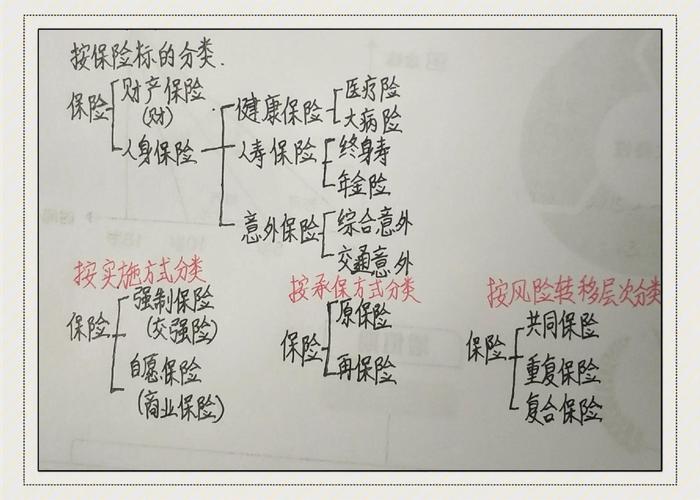 按保险标的分类.
保险 财产保险
(财)
人身保险
健康保险 医疗险
大病险
人寿保险 终身寿
年金险
意外保险 综合意外
交通意外
按实施方式分类
保险 强制保险
(交强险)
自愿保险
(商业保险)
按承保方式分类
保险 原保险
再保险
按风险转移层次分类
保险 共同保险
重复保险
复合保险